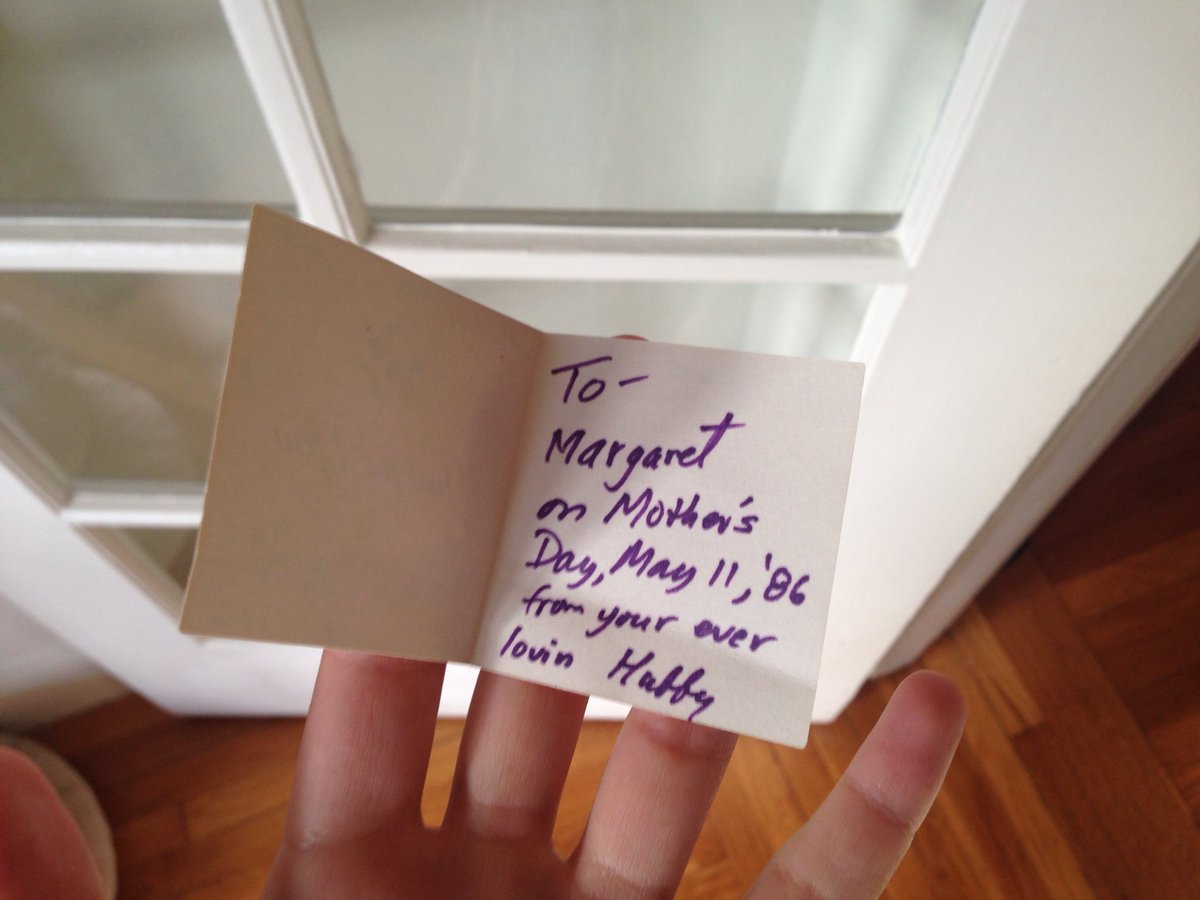 To-
Margaret
on Mother's
Day, May 11, '86
from your ever
lovin Hubby